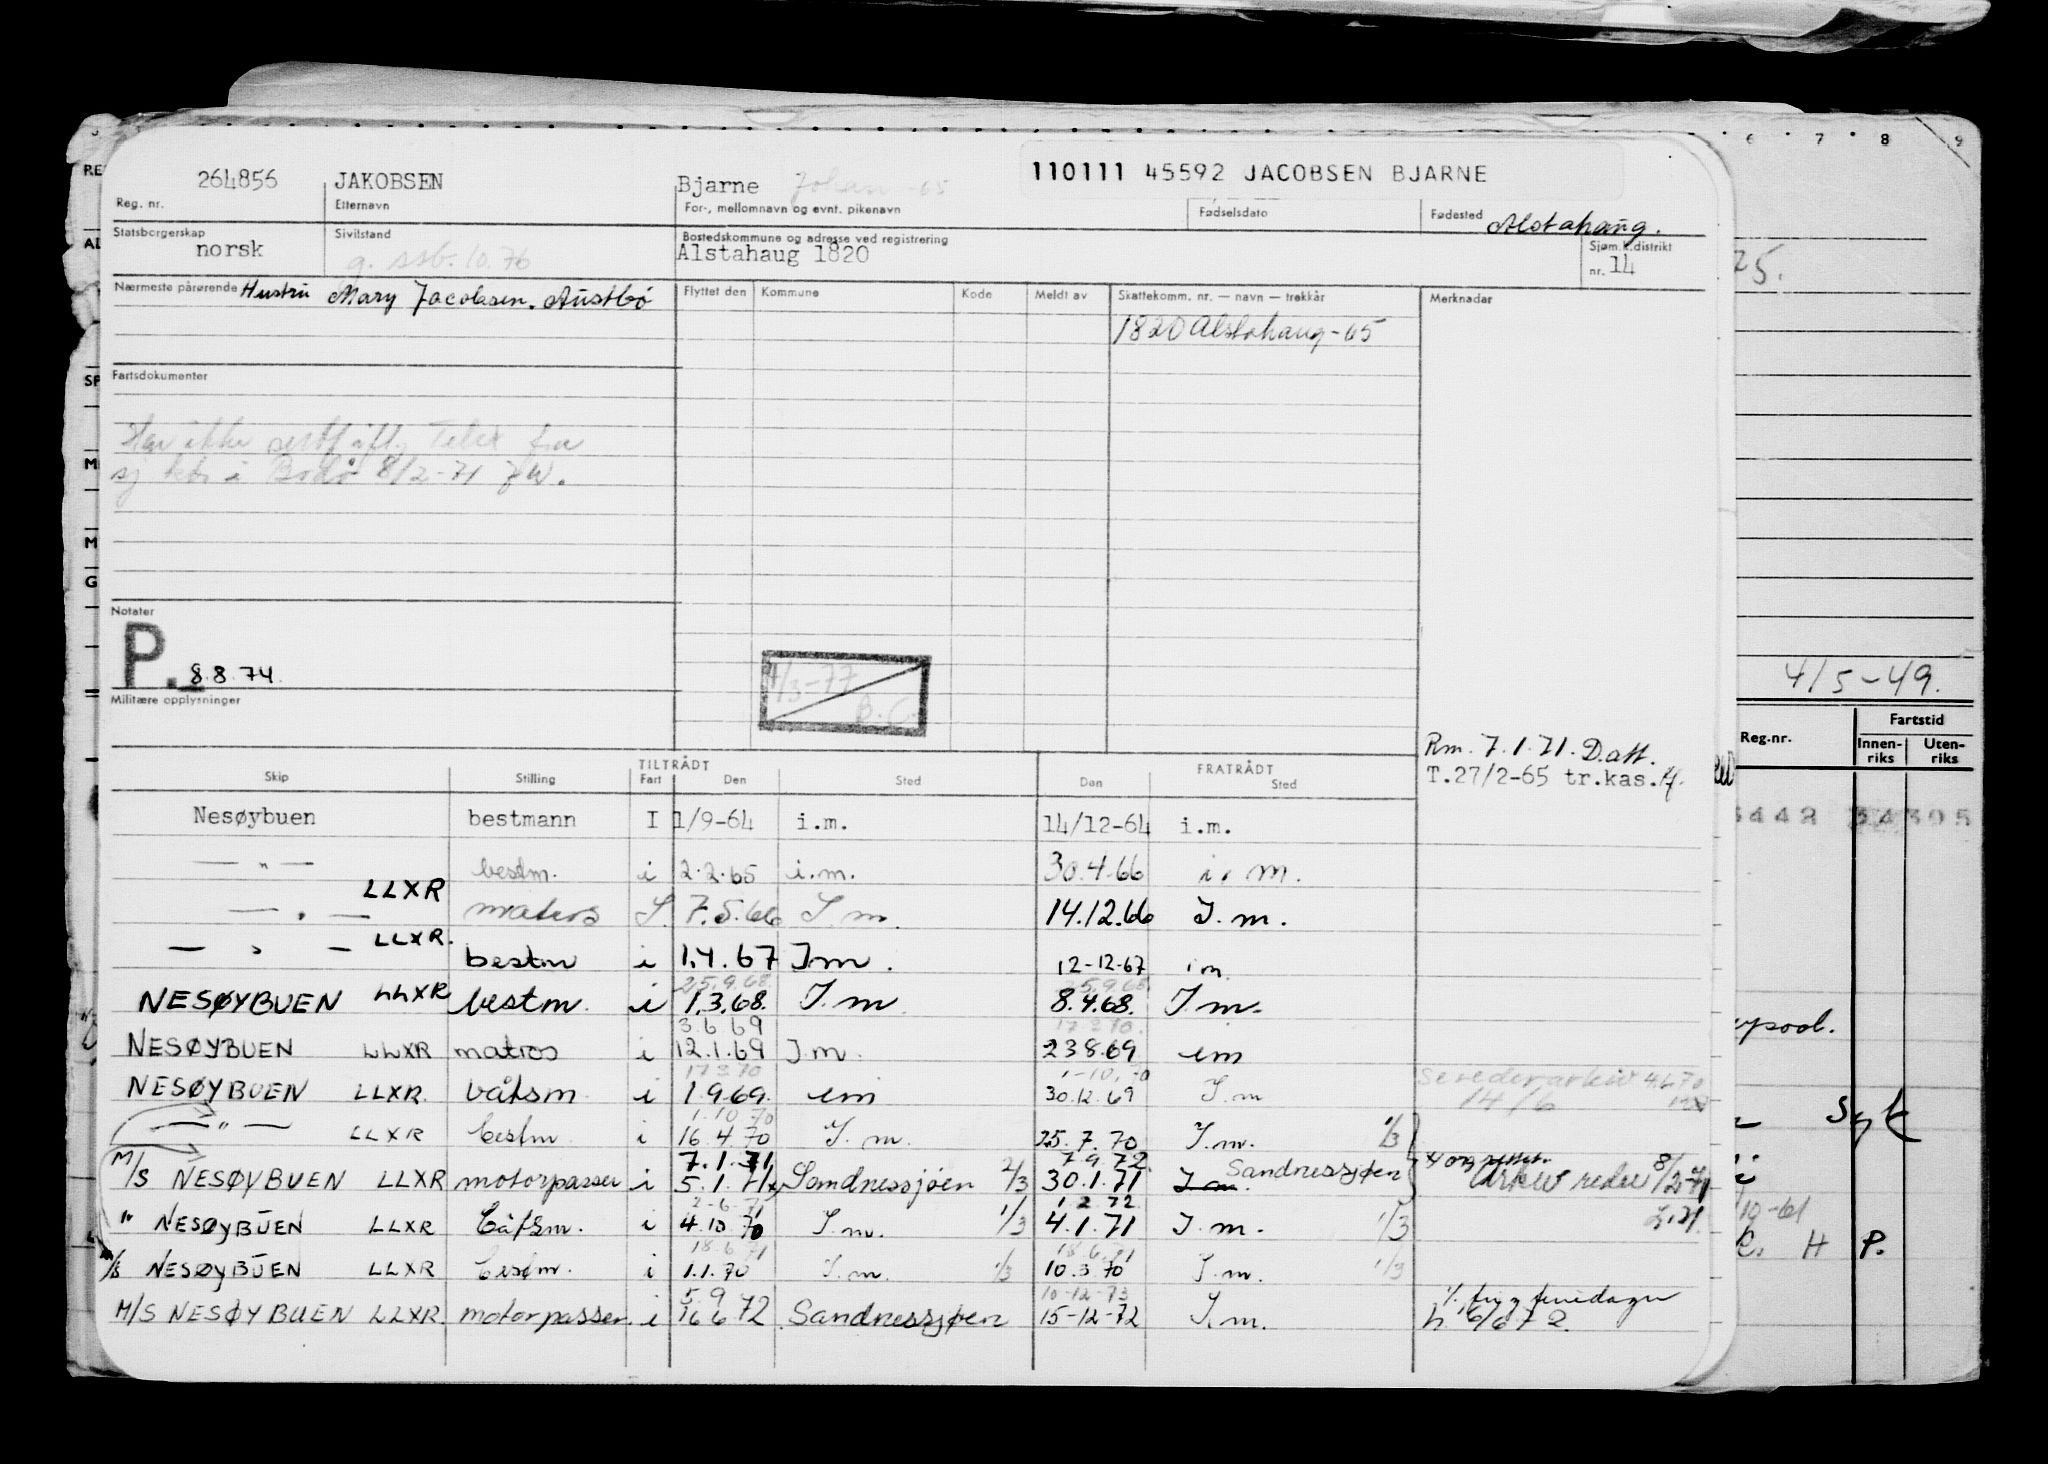 264856 JAKOBSEN Bjarne Johan -65 110111 45592 JACOBSEN BJARNE
Reg. nr. Etternavn For-, mellomnavn og evnt. pikenavn Fødselsdato Fødested Alstahaug.
Statsborgerskap Sivilstand Bostedskommune og adresse ved registrering Sjøm.k.distrikt
norsk g. ssb. 10.76 Alstahaug 1820 nr. 14
Nærmeste pårørende Hustru Mary Jacobsen. Austbø Flyttet den Kommune Kode Meldt av Skattekomm. nr. — navn — trekkår Merknader
1820 Alstahaug-65
Fartsdokumenter
Har ikke Telex fra
sj i Bodø 8/2-71
Notater
P. 8.8.74.
4/3-77
B.C.
Militære opplysninger
Rm. 7.1.71. Datt.
T.27/2-65 tr.kas.
TILTRÅDT FRATRÅDT
Skip Stilling Fart Den Sted Den Sted
Nesøybuen bestmann I 1/9-64 i.m. 14/12-64 i.m.
— " — bestm. i 2.2.65 i.m. 30.4.66 i.m.
— " — LLXR matros I. 7.5.66 I.m. 14.12.66 I.m.
— " — LLXR. bestm i 1.4.67 Im. 12-12-67 im
25.9.68 25.9.68
NESØYBUEN LLXR bestm. i 1.3.68. I.m 8.4.68. I.m.
3.6.69 17.2.70.
NESØYBUEN LLXR matros i 12.1.69 I.m. 23.8.69 im
17.3.70 1-10.70
NESØYBUEN LLXR. båtsm i 1.9.69. im 30.12.69 I.m 14/6
1.10.70
— " — LLXR bestm i 16.4.70 I.m. 25.7.70 I.m. 1/3
7.1.71 7.9.72
M/S NESØYBUEN LLXR motorpasser i 5.1.71 Sandnessjøen 2/3 30.1.71 I.m. Sandnessjøen Arkiv 8/2-71
2-6-71 1.2.72
" NESØYBUEN LLXR båtsm. i 4.10.70 I.m. 1/3 4.1.71 I.m. 1/3
18.6.71 18.6.71
NESØYBUEN LLXR bestm. i 1.1.70 I.m. 1/3 10.3.70 I.m. 1/3
5.9.72 10-12-73
M/S NESØYBUEN LLXR. motorpasser. i 16.6.72 Sandnessjøen 15-12-72 I.m. 6/6 72.
6 7 8 9
25.
4/5-49.
Reg.nr. Fartstid
Innenriks Utenriks
3442 34305
Syk
10-61
H P.